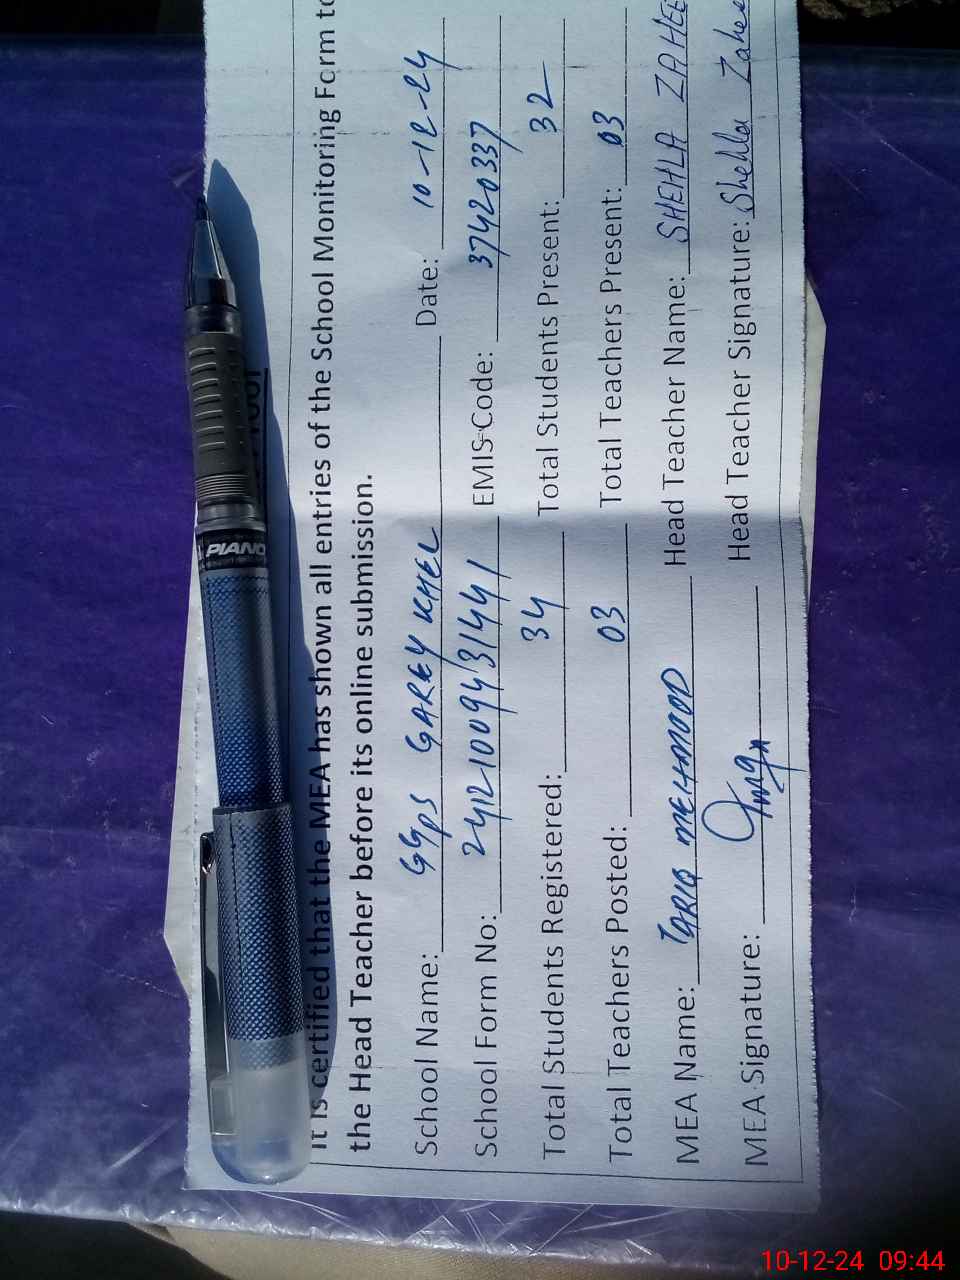 It is certified that the MEA has shown all entries of the School Monitoring Form to
the Head Teacher before its online submission.
School Name: GGPS GAREY KHEL Date: 10-12-24
School Form No: 2412100943144/ EMIS Code: 37420337
Total Students Registered: 34 Total Students Present: 32
Total Teachers Posted: 03 Total Teachers Present: 03
MEA Name: TARIQ MEHMOOD Head Teacher Name: SHEHLA ZAHEE
MEA Signature: Head Teacher Signature: Shehla Zahee
PIANO
10-12-24 09:44